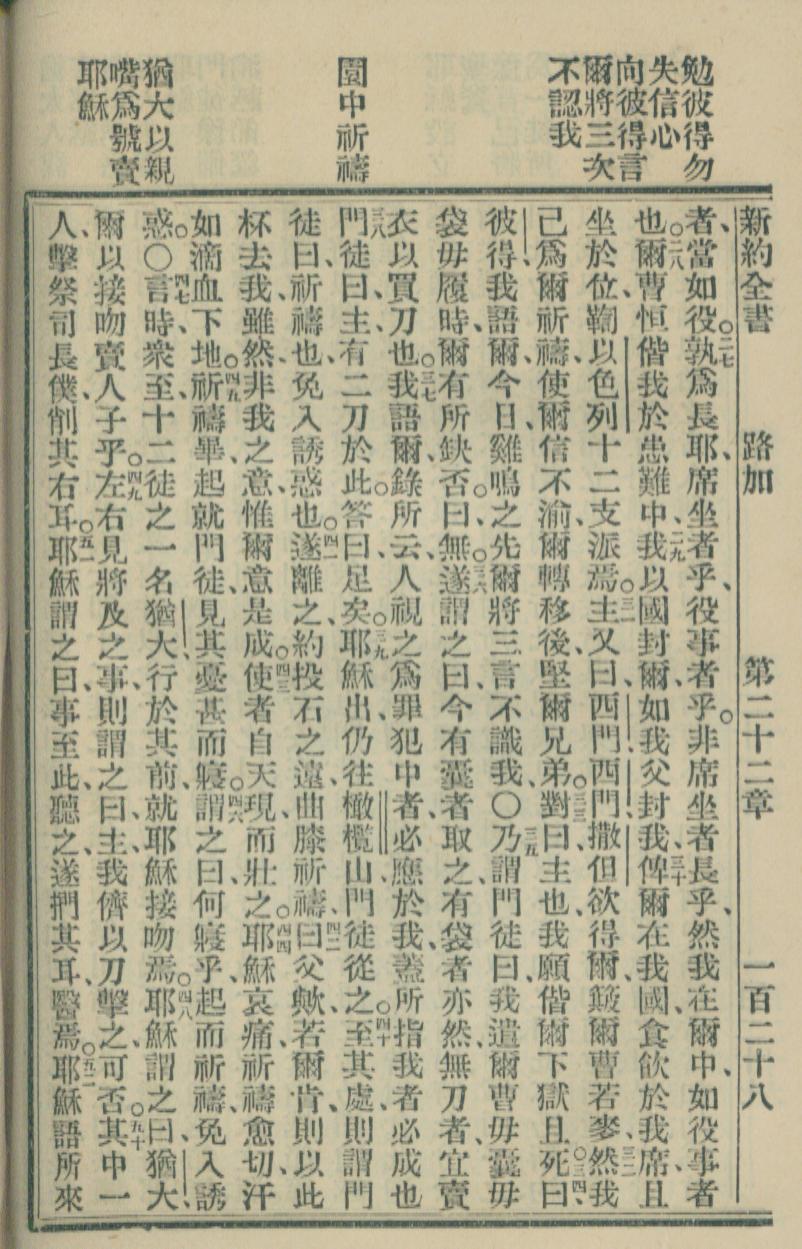 勉彼得勿
失信心
向彼得言
爾將三次
不認我
園中祈禱
猶大以親
嘴爲號賣
耶穌
新約全書 路加 第二十二章 一百二十八
者、當如役、二七孰爲長耶、席坐者乎、役事者乎。非席坐者長乎、然我在爾中、如役事者
也。二八爾曹恒偕我於患難中、二九我以國封爾、如我父封我、三十俾爾在我國食飲於我席、且
坐於位、鞫以色列十二支派焉。三一主又曰、西門、西門、撒但欲得爾、簸爾曹若麥、三二然我
己爲爾祈禱、使爾信不渝、爾轉移後、堅爾兄弟。三三對曰、主也、我願偕爾下獄且死。三四曰、
彼得、我語爾、今日雞鳴之先、爾將三言不識我〇三五乃謂門徒曰、我遣爾曹、毋囊毋
袋毋履時、爾有所缺否。曰無。三六遂謂之曰、今有囊者取之、有袋者亦然、無刀者、宜賣
衣以買刀也。三七我語爾、錄所云、人視之爲罪犯中者、必應於我、蓋所指我者必成也
三八門徒曰、主、有二刀於此。答曰、足矣。三九耶穌出、仍往橄欖山、門徒從之。四十至其處、則謂門
徒曰、祈禱也、免入誘惑也。四一遂離之、約投石之遠、曲膝祈禱、四二曰、父歟、若爾肯、則以此
杯去我、雖然、非我之意、惟爾意是成。四三使者自天現而壯之。四四耶穌哀痛、祈禱愈切、汗
如滴血下地。四五祈禱畢、起就門徒、見其憂甚而寢。四六謂之曰、何寢乎、起而祈禱、免入誘
惑。〇四七言時、衆至、十二徒之一名猶大、行於其前、就耶穌接吻焉。四八耶穌謂之曰、猶大、
爾以接吻賣人子乎。四九左右見將及之事、則謂之曰、主、我儕以刀擊之可否。五十其中一
人、擊祭司長僕、削其右耳。五一耶穌謂之曰、事至此、聽之、遂捫其耳、醫焉。五二耶穌語所來